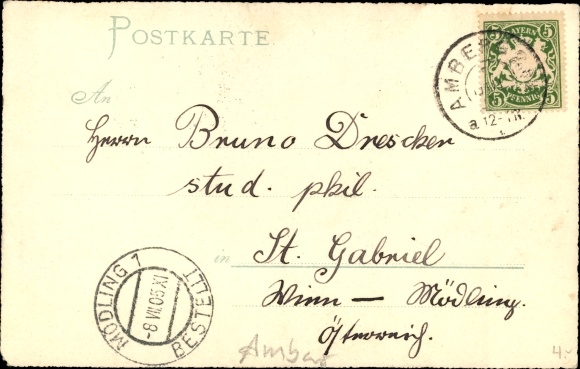 POSTKARTE
BAYERN
5 5
5 5
PFENNIG
AMBERG
a 12-1N.
An
Herrn Bruno Drescher
stud. phil.
in St. Gabriel
Wien — Mödling.
Österreich.
MÖDLING 1
-8 VII 05 XI
BESTELLT
Amberg
4.-